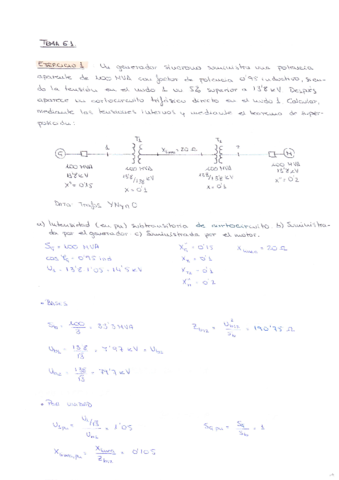 TEMA 5.1
EJERCICIO 1 Un generador síncrono suministra una potencia
aparente de 100 MVA con factor de potencia 0'95 inductivo, sien-
do la tensión en el nudo 1 un 5% superior a 13'8 kV. Después
aparece un cortocircuito trifásico directo en el nudo 1. Calcular,
mediante las tensiones internas y mediante el teorema de super-
posición:
G 1 T1 Xlinea = 20 Ω T2 M
100 MVA
13'8 kV
X" = 0'15
100 MVA
X = 0'1
100 MVA
X = 0'1
100 MVA
13'8 kV
Dato: Trafos YNyn0
a) Intensidad (en pu) subtransitoria de cortocircuito. b) Suminista-
da por el generador c) Suministrada por el motor.
SG = 100 MVA
cos φG = 0'95 ind
U1 = 13'8 · 1'05 = 14'5 kV
Xlinea = 20 Ω
• Bases
Sb = 100/3 = 33'3 MVA
Ub1 = 13'8/√3 = 7'97 kV = Ub3
Ub2 = 138/√3 = 79'7 kV
Zb2 = Ub2²/Sb = 190'75 Ω
• Por unidad
U1pu = U1/√3 / Ub1 = 1'05
Xlinea,pu = Xlinea/Zb2 = 0'105